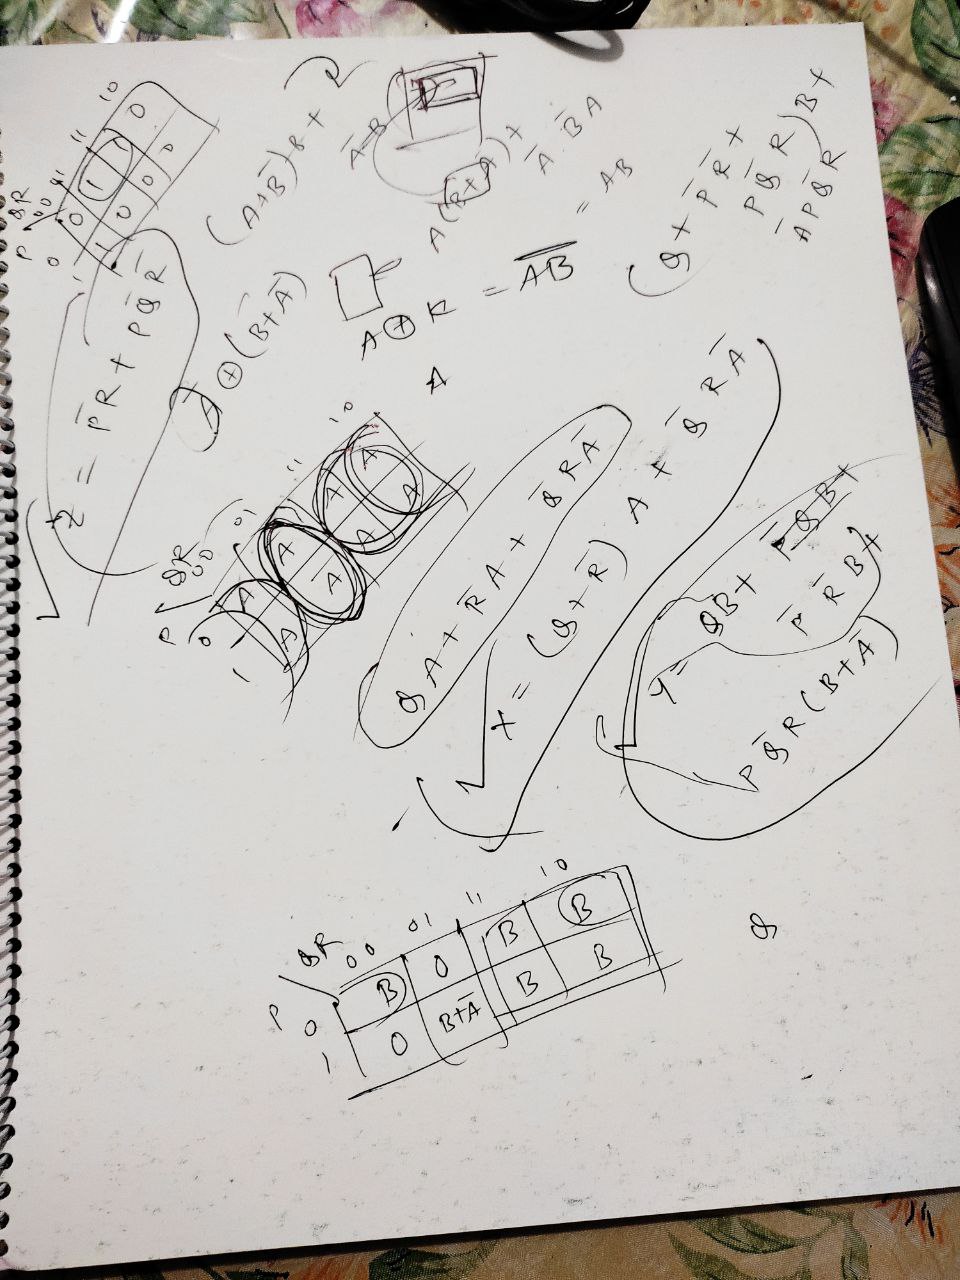 QR
00
01
11
10
P
0
0
1
0
1
1
0
0
0
Z = P̅R + PQ̅R̅
(A+B̅)B +
A̅ ⊕ (B̅+A̅)
A̅ B̅ A
= AB
A ⊕ R = A̅B̅
A
(Q + P̅ R̅ +
P Q̅ R) B +
A̅ P Q̅ R
QR
00
01
11
10
P
0
A
A̅
A
A
1
A
A̅
A
A
QA + R̅A + Q̅RA̅
X = (Q + R̅) A + Q̅ R A̅
Y = QB + P̅ Q̅ B +
P̅ R̅ B +
P Q̅ R (B + A̅)
QR
00
01
11
10
P
0
B
0
B
B
1
0
B+A̅
B
B
Q